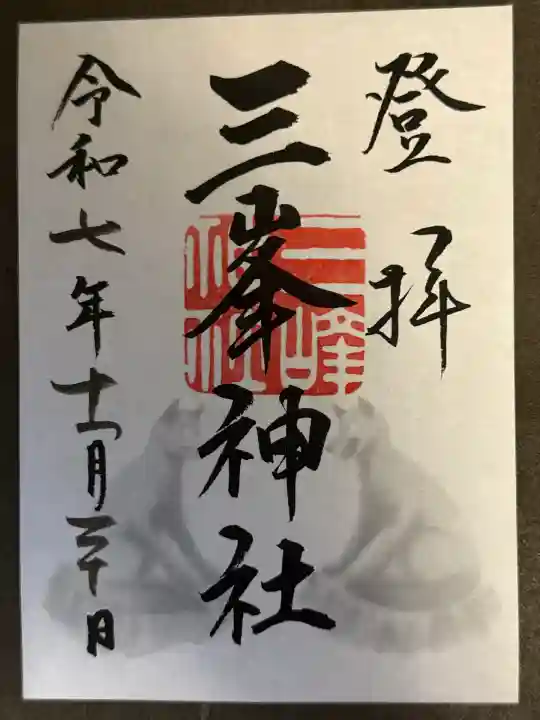 登拝
三峯神社
令和七年十一月三十日
三峰
神社